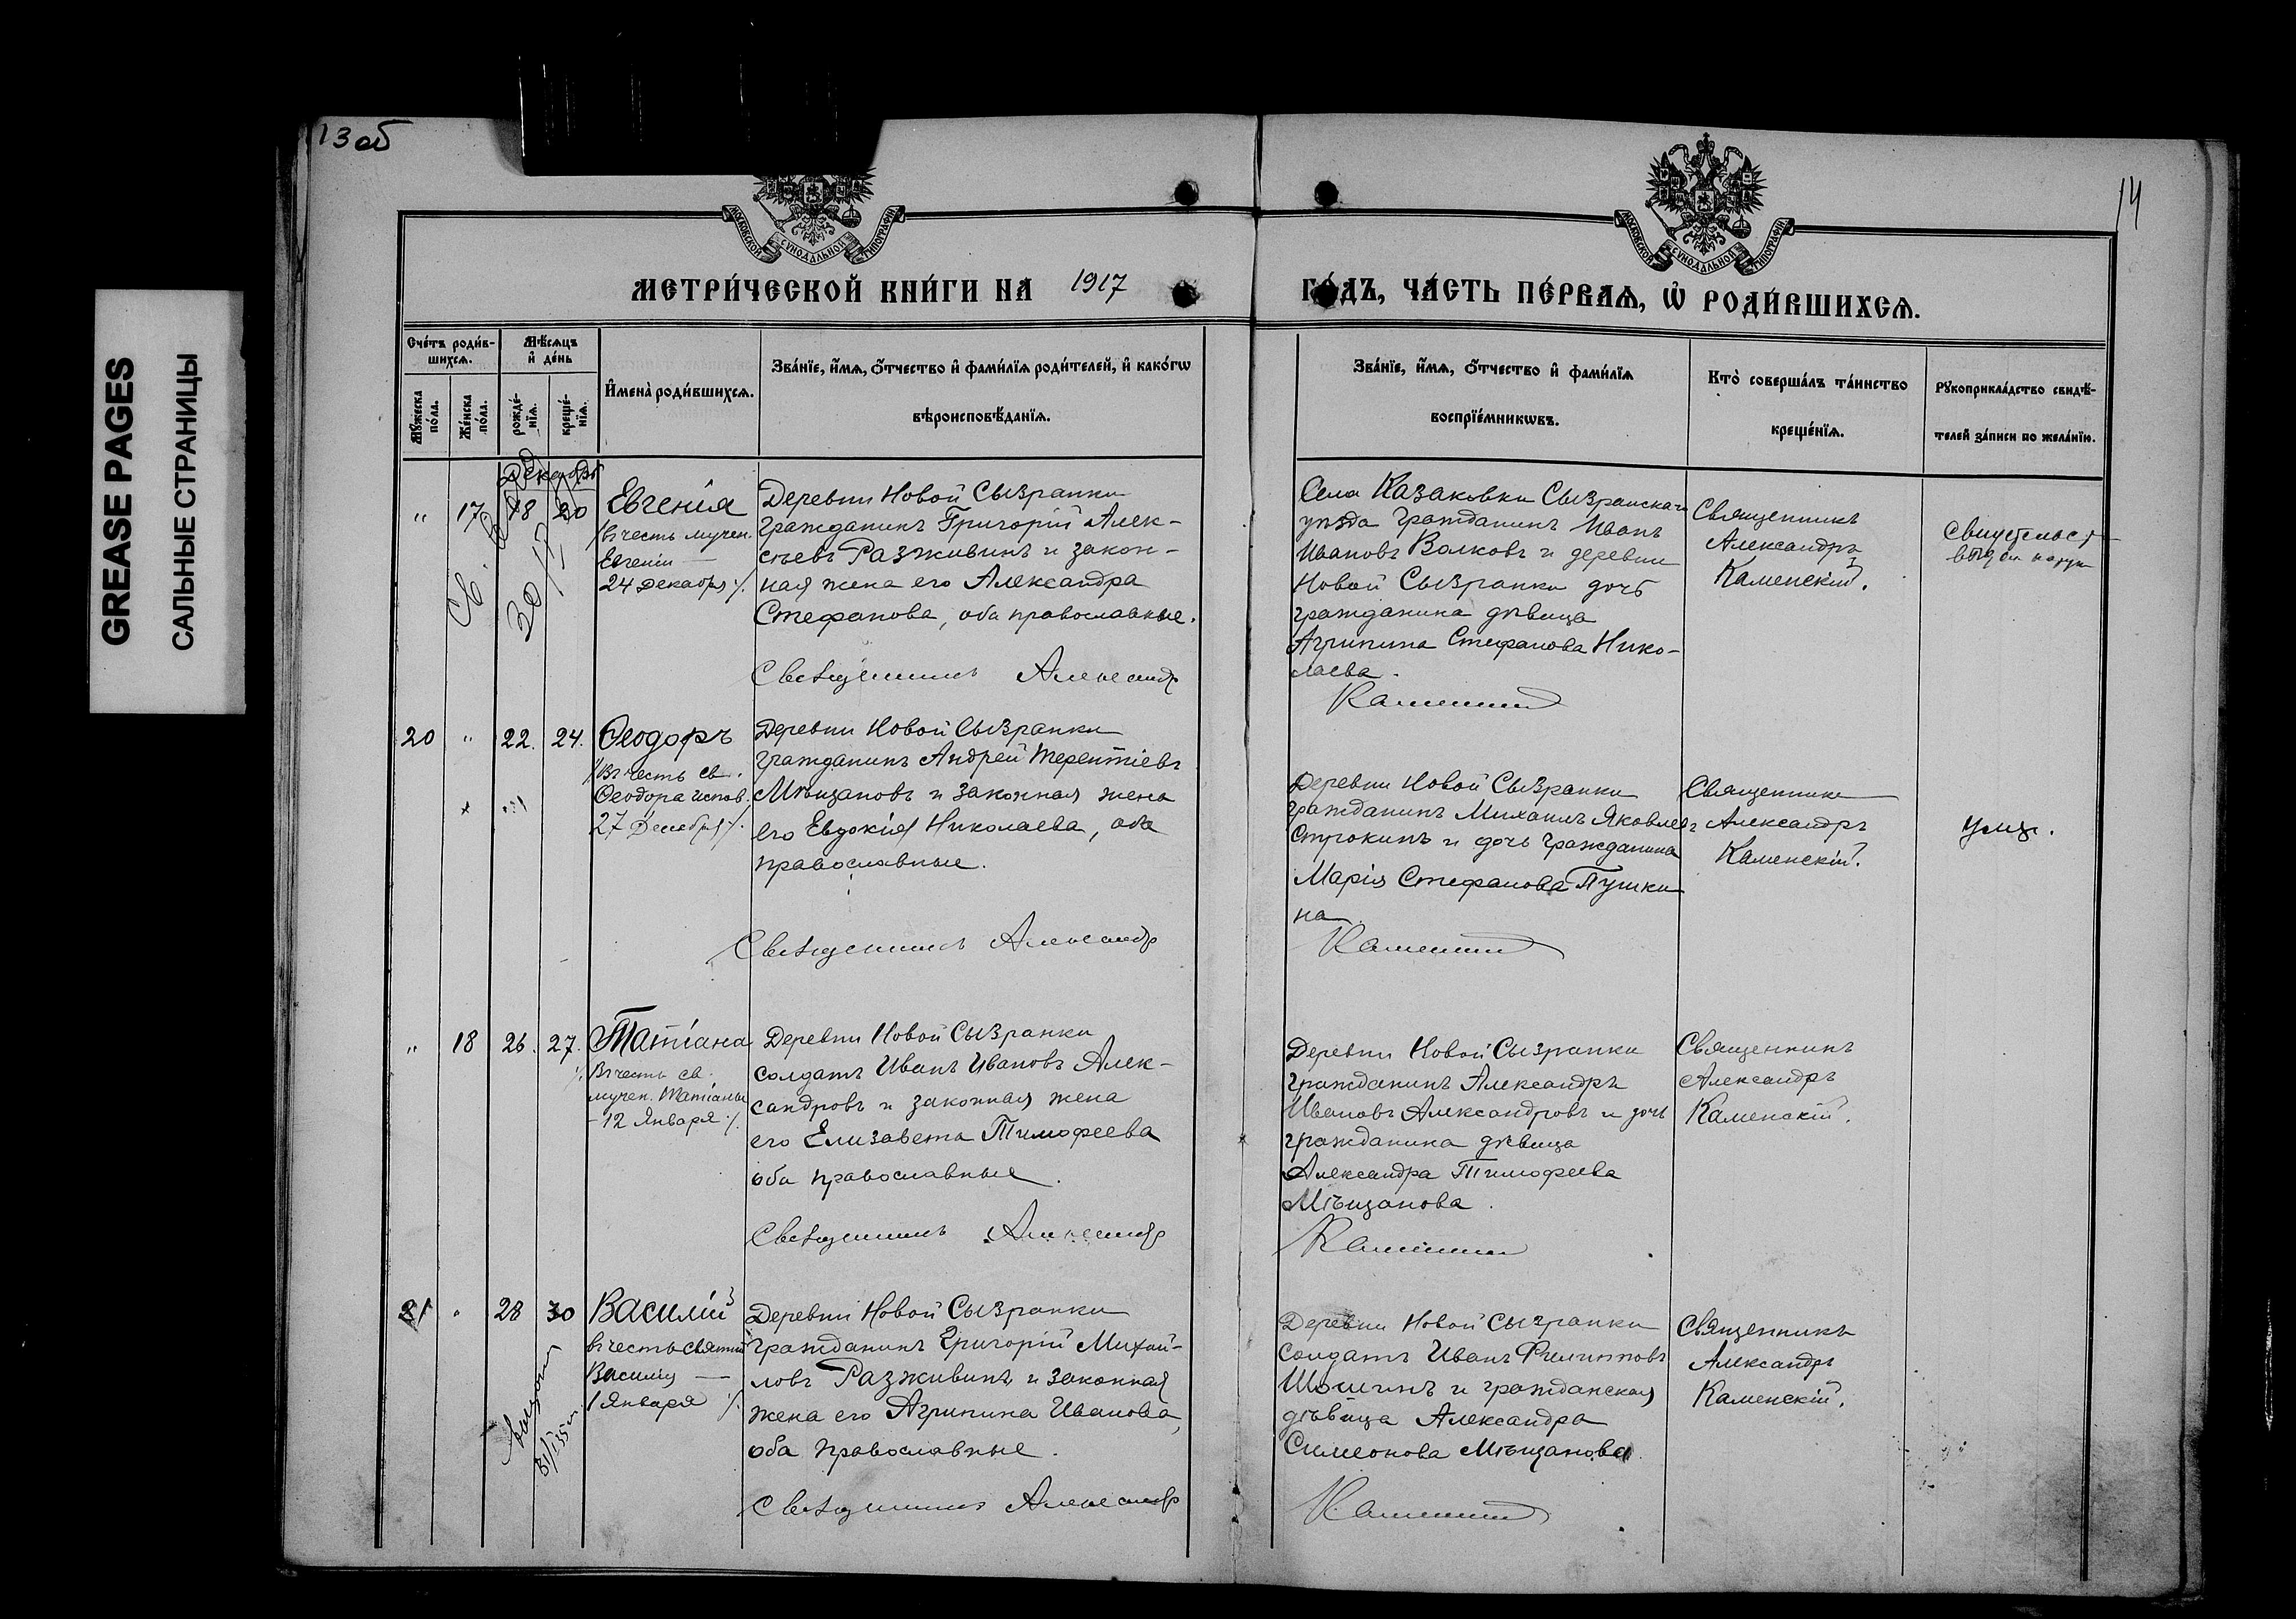 GREASE PAGES
САЛЬНЫЕ СТРАНИЦЫ
13 об
14
МОСКОВСКОЙ СѴНОДАЛЬНОЙ ТИПОГРАФІИ
МОСКОВСКОЙ СѴНОДАЛЬНОЙ ТИПОГРАФІИ
МЕТРИ́ЧЕСКОЙ КНИ́ГИ НА 1917
ГО́ДЪ, ЧА́СТЬ ПЕ́РВАѦ, Ѡ҆ РОДИ́ВШИХСѦ.
Сче́тъ роди́в-
шихсѧ.
Мꙋ́жеска
по́ла.
Же́нска
по́ла.
Мѣ́сѧцъ
и҆ де́нь
рожде́-
нїѧ.
креще́-
нїѧ.
И҆мена̀ роди́вшихсѧ.
Зва́нїе, и҆́мѧ, ѻ҆́тчество и҆ фами́лїѧ роди́телей, и҆ како́гѡ
вѣроисповѣ́данїѧ.
Зва́нїе, и҆́мѧ, ѻ҆́тчество и҆ фами́лїѧ
воспрїе́мникѡвъ.
Кто̀ соверша́лъ та́инство
креще́нїѧ.
Рꙋкоприкла́дство свидѣ́-
телей за́писи по жела́нїю.
Декабрь
" 17 18 20
Евгенія
/въ честь мучен.
Евгеніи —
24 Декабря /.
Деревни Новой Сызранки
гражданинъ Григорій Алек-
сѣевъ Разживинъ и закон-
ная жена его Александра
Стефанова, оба православные.
Священникъ Александр
Села Казаковки Сызранскаго
уѣзда гражданинъ Иванъ
Ивановъ Волковъ и деревни
Новой Сызранки дочь
гражданина дѣвица
Агрипина Стефанова Нико-
лаева.
Каменский
Священникъ
Александръ
Каменскій.
20 " 22. 24.
Ѳеодоръ
/Въ честь св.
Ѳеодора испов.
27 Декабря /.
Деревни Новой Сызранки
гражданинъ Андрей Терентіевъ
Мѣщановъ и законная жена
его Евдокія Николаева, оба
православные.
Священникъ Александр
Деревни Новой Сызранки
гражданинъ Михаилъ Яковлевъ
Строкинъ и дочь гражданина
Марія Стефанова Пушки
на.
Каменский
Священникъ
Александръ
Каменскій.
умер.
" 18 26. 27.
Татіана
/. Въ честь св.
мучен. Татіаны
- 12 Января /.
Деревни Новой Сызранки
солдатъ Иванъ Ивановъ Алек-
сандровъ и законная жена
его Елизавета Тимофеева
оба православные.
Священникъ Александр
Деревни Новой Сызранки
гражданинъ Александръ
Ивановъ Александровъ и дочь
гражданина дѣвица
Александра Тимофеева
Мѣщанова.
Каменский
Священникъ
Александръ
Каменскій.
21 " 28 30
Василій
въ честь святит.
Василія —
1 Января /.
Деревни Новой Сызранки
гражданинъ Григорій Михай-
ловъ Разживинъ и законная
жена его Агрипина Иванова,
оба православные.
Священникъ Александр
Деревни Новой Сызранки
солдатъ Иванъ Филипповъ
Шошинъ и гражданская
дѣвица Александра
Симеонова Мѣщанова.
Каменский
Священникъ
Александръ
Каменскій.